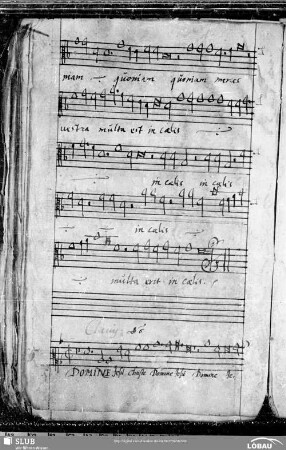 niam quoniam quoniam merces
vestra multa est in celis
in celis in celis
in celis
multa est in celis.
DOMINE Jesu Christe Domine Jesu Domine Je
SLUB
LÖBAU